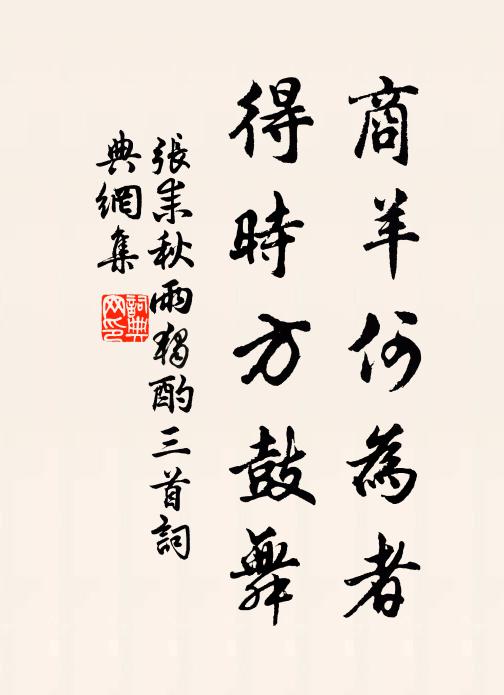 商羊何為者
得時方鼓舞
張耒秋雨獨酌三首詞
典網集
詞典
网印